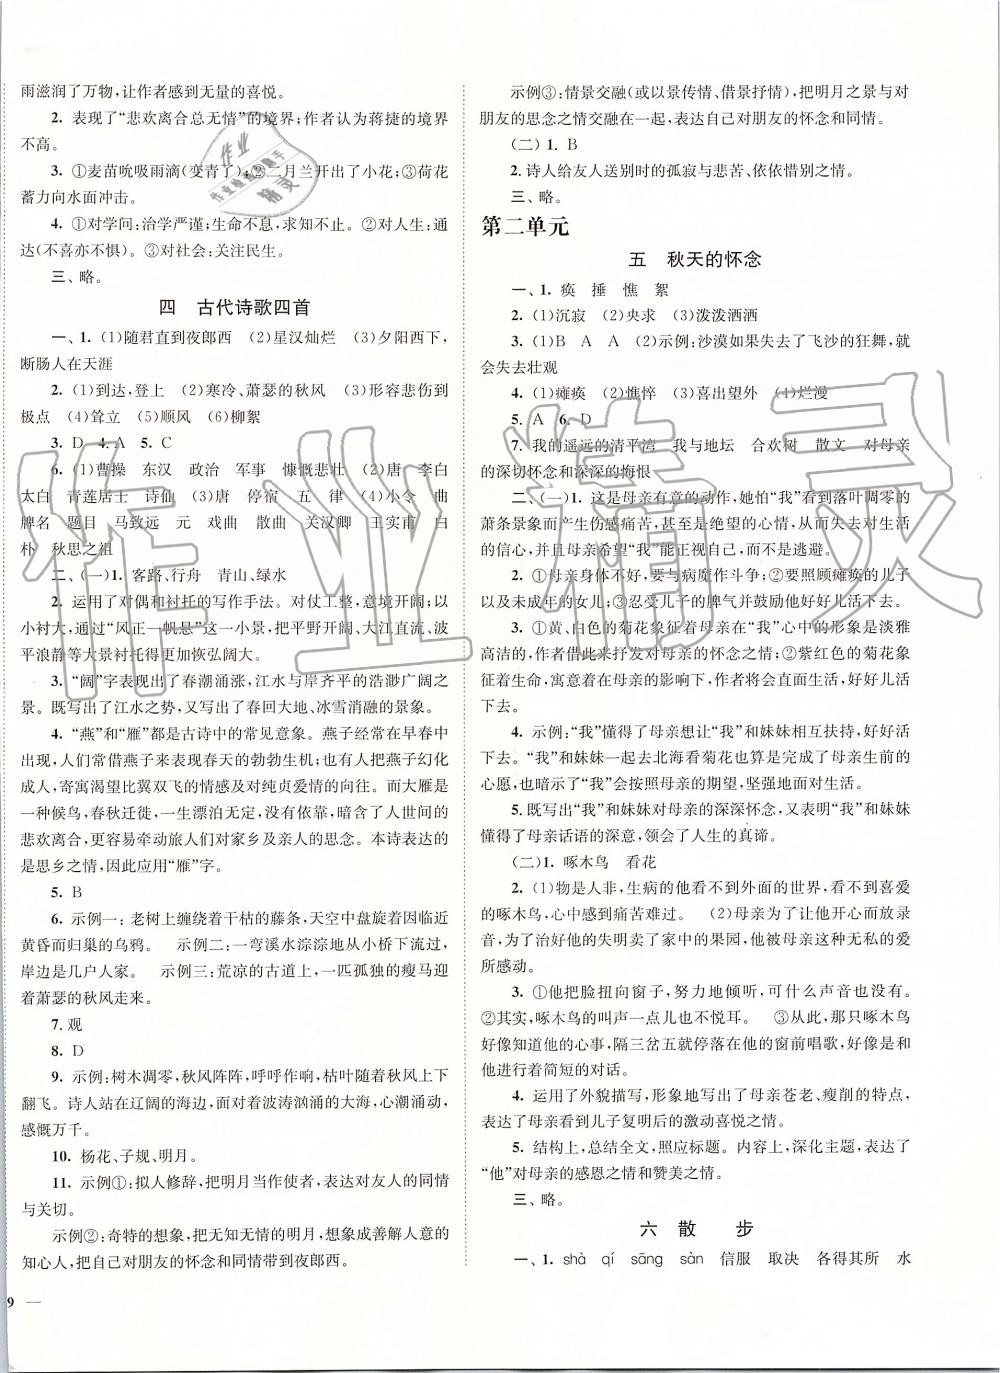 雨滋润了万物,让作者感到无量的喜悦。
2. 表现了“悲欢离合总无情”的境界;作者认为蒋捷的境界
不高。
3. ①麦苗吮吸雨滴(变青了);②二月兰开出了小花;③荷花
蓄力向水面冲击。
4. ①对学问:治学严谨;生命不息,求知不止。②对人生:通
达(不喜亦不惧)。③对社会:关注民生。
三、略。
四 古代诗歌四首
一、1. (1)随君直到夜郎西 (2)星汉灿烂 (3)夕阳西下,
断肠人在天涯
2. (1)到达,登上 (2)寒冷、萧瑟的秋风 (3)形容悲伤到
极点 (4)耸立 (5)顺风 (6)柳絮
3. D 4. A 5. C
6. (1)曹操 东汉 政治 军事 慷慨悲壮 (2)唐 李白
太白 青莲居士 诗仙 (3)唐 停宿 五 律 (4)小令 曲
牌名 题目 马致远 元 戏曲 散曲 关汉卿 王实甫 白
朴 秋思之祖
二、(一)1. 客路、行舟 青山、绿水
2. 运用了对偶和衬托的写作手法。对仗工整,意境开阔;以
小衬大,通过“风正一帆悬”这一小景,把平野开阔、大江直流、波
平浪静等大景衬托得更加恢弘阔大。
3. “阔”字表现出了春潮涌涨,江水与岸齐平的浩渺广阔之
景。既写出了江水之势,又写出了春回大地、冰雪消融的景象。
4. “燕”和“雁”都是古诗中的常见意象。燕子经常在早春中
出现,人们常借燕子来表现春天的勃勃生机;也有把燕子幻化
成人,寄寓渴望比翼双飞的情感及对纯贞爱情的向往。而大雁
是一种候鸟,春秋迁徙,一生漂泊无定,没有依靠,暗含了人世间的
悲欢离合,更容易牵动旅人们对家乡及亲人的思念。本诗表达的
是思乡之情,因此应用“雁”字。
5. B
6. 示例一:老树上缠绕着干枯的藤条,天空中盘旋着因临近
黄昏而归巢的乌鸦。 示例二:一弯溪水淙淙地从小桥下流过,
岸边是几户人家。 示例三:荒凉的古道上,一匹孤独的瘦马迎
着萧瑟的秋风走来。
7. 观
8. D
9. 示例:树木凋零,秋风阵阵,呼呼作响,枯叶随风上下
翻飞。诗人站在辽阔的海边,面对着波涛汹涌的大海,心潮涌动,
感慨万千。
10. 杨花、子规、明月。
11. 示例①:拟人修辞,把明月当作使者,表达对友人的同情
与关切。
示例②:奇特的想象,把无知无情的明月,想象成善解人意的
知心人,把自己对朋友的怀念和同情带到夜郎西。
9 —
示例③:情景交融(或以景传情、借景抒情),把明月之景与对
朋友的思念之情交融在一起,表达自己对朋友的怀念和同情。
(二)1. B
2. 诗人给友人送别时的孤寂与悲苦、依依惜别之情。
三、略。
第二单元
五 秋天的怀念
一、1. 痪 捶 憔 絮
2. (1)沉寂 (2)央求 (3)泼泼洒洒
3. (1)B A A (2)示例:沙漠如果失去了飞沙的狂舞,就
会失去壮观
4. (1)瘫痪 (2)憔悴 (3)喜出望外 (4)烂漫
5. A 6. D
7. 我的遥远的清平湾 我与地坛 合欢树 散文 对母亲
的深切怀念和深深的悔恨
二、(一)1. 这是母亲有意的动作,她怕“我”看到落叶凋零的
萧条景象而产生伤感痛苦,甚至是绝望的心情,从而失去对生活
的信心,并且母亲希望“我”能正视自己,而不是逃避。
2. ①母亲身体不好,要与病魔作斗争;②要照顾瘫痪的儿子
以及未成年的女儿;③忍受儿子的脾气并使其坚强地活下去。
3. ①黄、白色的菊花象征着母亲在“我”心中的形象是淡雅
高洁的,作者借此来抒发对母亲的怀念之情;②紫红色的菊花象
征着生命,寓意着在母亲的影响下,作者将会直面生活,好好儿活
下去。
4. 示例:“我”懂得了母亲想让“我”和妹妹相互扶持,好好活
下去。“我”和妹妹一起去北海看菊花也算是完成了母亲生前的
心愿,也暗示了“我”会按照母亲的期望,坚强地面对生活。
5. 既写出“我”和妹妹对母亲的深深怀念,又表明“我”和妹妹
懂得了母亲话语的深意,领会了人生的真谛。
(二)1. 啄木鸟 看花
2. (1)物是人非,生病的他看不到外面的世界,看不到喜爱
的啄木鸟,心中感到痛苦难过。 (2)母亲为了让他开心而放录
音,为了治好他的失明卖了家中的果园,他被母亲这种无私的爱
所感动。
3. ①他把脸扭向窗子,努力地倾听,可什么声音也没有。
②其实,啄木鸟的叫声一点儿也不悦耳。 ③从此以后,啄木鸟
好像知道他的心事,隔三岔五就停落在他的窗前唱歌,好像在和
他进行着简短的对话。
4. 运用了外貌描写,形象地写出了母亲苍老、瘦削的特点,
表达了母亲看到儿子复明后的激动喜悦之情。
5. 结构上,总结全文,照应标题。内容上,深化主题,表达了
“他”对母亲的感恩之情和赞美之情。
三、略。
六 散 步
一、1. shà qí sāng sàn 信服 取决 各得其所 水